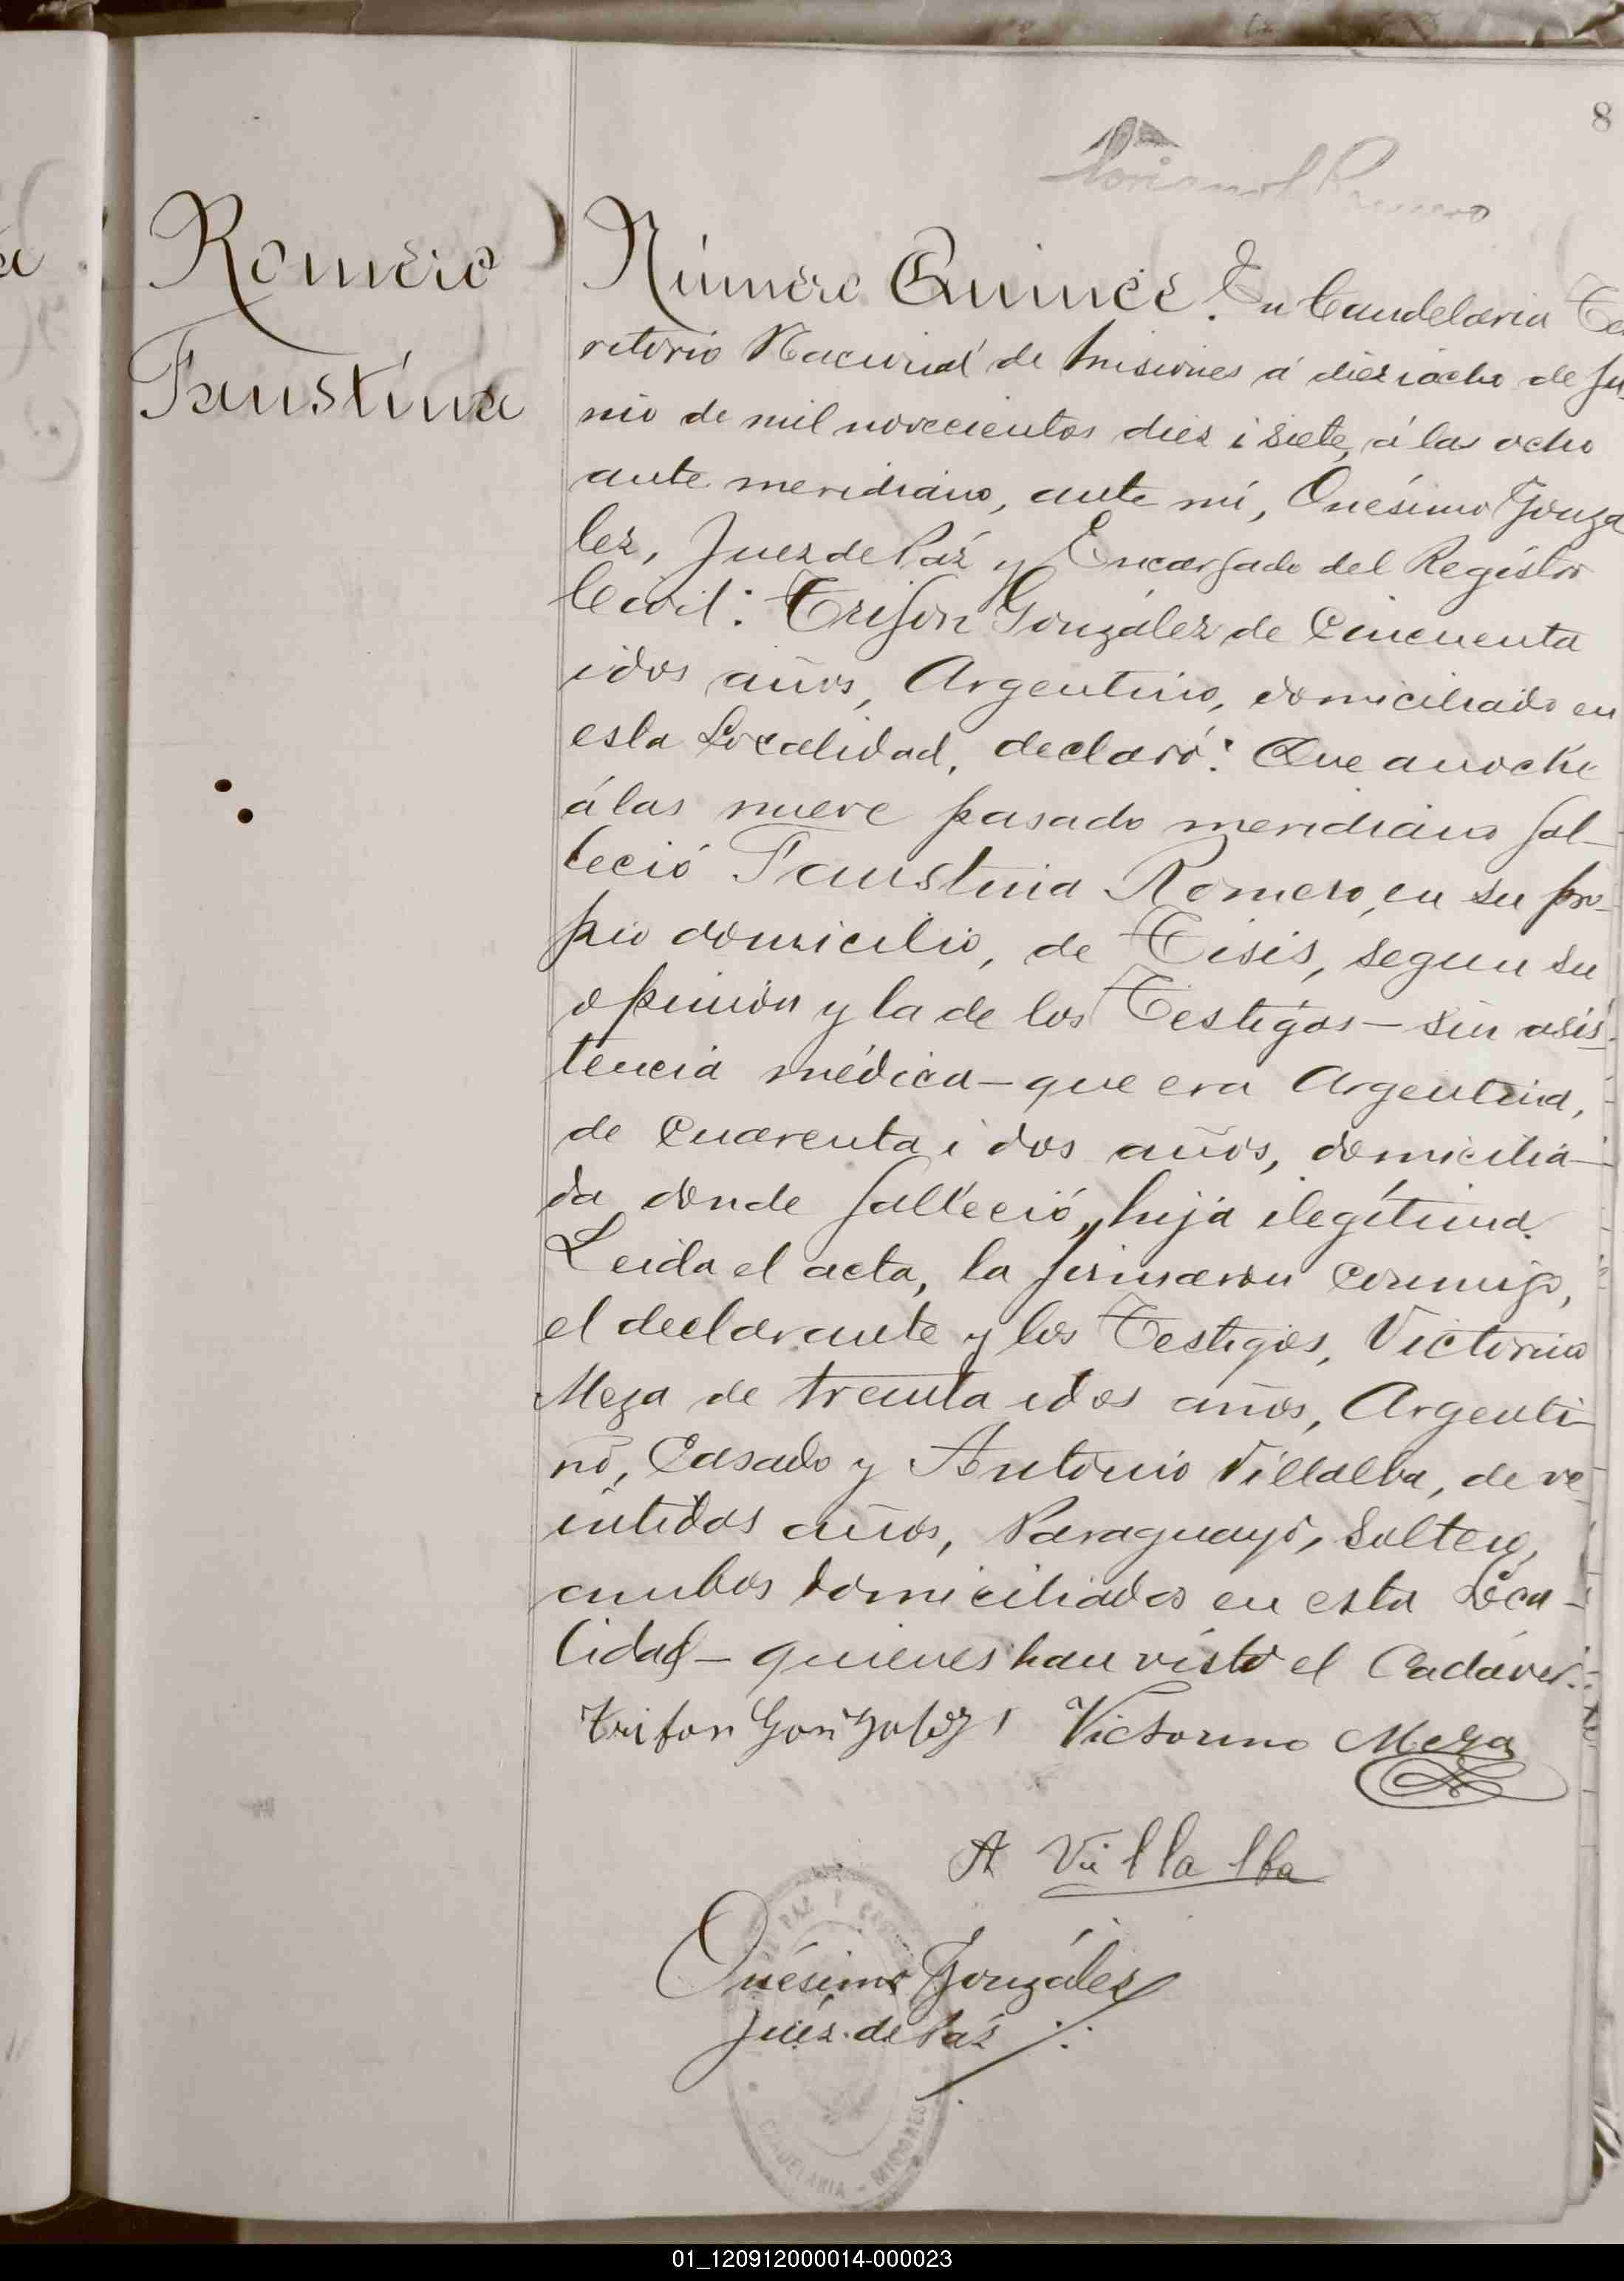 8
Romero
Faustina
Número Quince. En Candelaria Te
rritorio Nacional de Misiones á dieziocho de Ju
nio de mil novecientos diez i siete, á las ocho
ante meridiano, ante mí, Onésimo Gonza
lez, Juez de Paz y Encargado del Registro
Civil: Trifon González de Cincuenta
idos años, Argentino, domiciliado en
esta Localidad, declaró: Que anoche
á las nueve pasado meridiano fal-
leció Faustina Romero, en su pro-
pio domicilio, de Tisis, segun su
opinión y la de los Testigos – sin asis-
tencia médica – que era Argentina,
de Cuarenta i dos años, domicilia-
da donde falleció, hija ilegítima.
Leida el acta, la firmaron conmigo,
el declarante y los Testigos, Victorino
Meza de treinta idos años, Argenti-
no, Casado y Antonio Villalba, de ve-
intidos años, Paraguayo, Soltero,
ambos domiciliados en esta Loca-
lidad – quienes han visto el Cadáver.
Trifon Gonzalez Victorino Meza
A Villalba
Onésimo González
Juéz de Paz
CANDELARIA - MISIONES
01_120912000014-000023